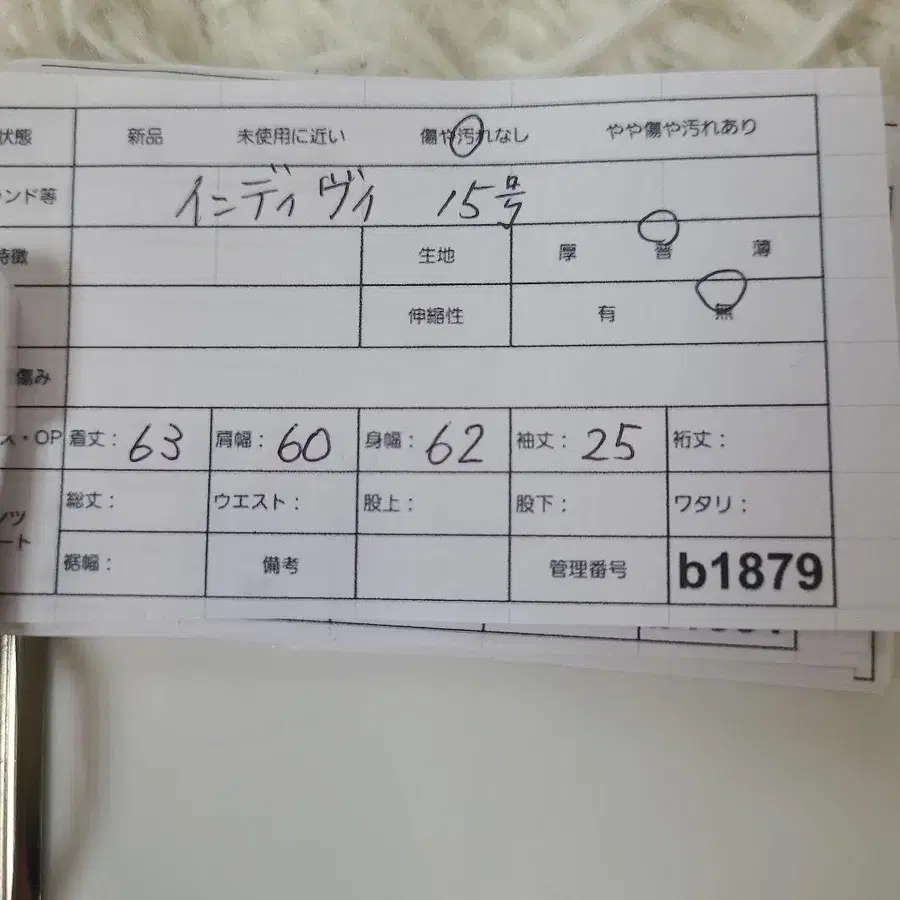 状態 新品 未使用に近い 傷や汚れなし やや傷や汚れあり
ンド等 インディヴィ 15号
特徴 生地 厚 普 薄
伸縮性 有 無
傷み
ス・OP 着丈: 63 肩幅: 60 身幅: 62 袖丈: 25 裄丈:
総丈: ウエスト: 股上: 股下: ワタリ:
ンツ
ート
裾幅: 備考 管理番号 b1879